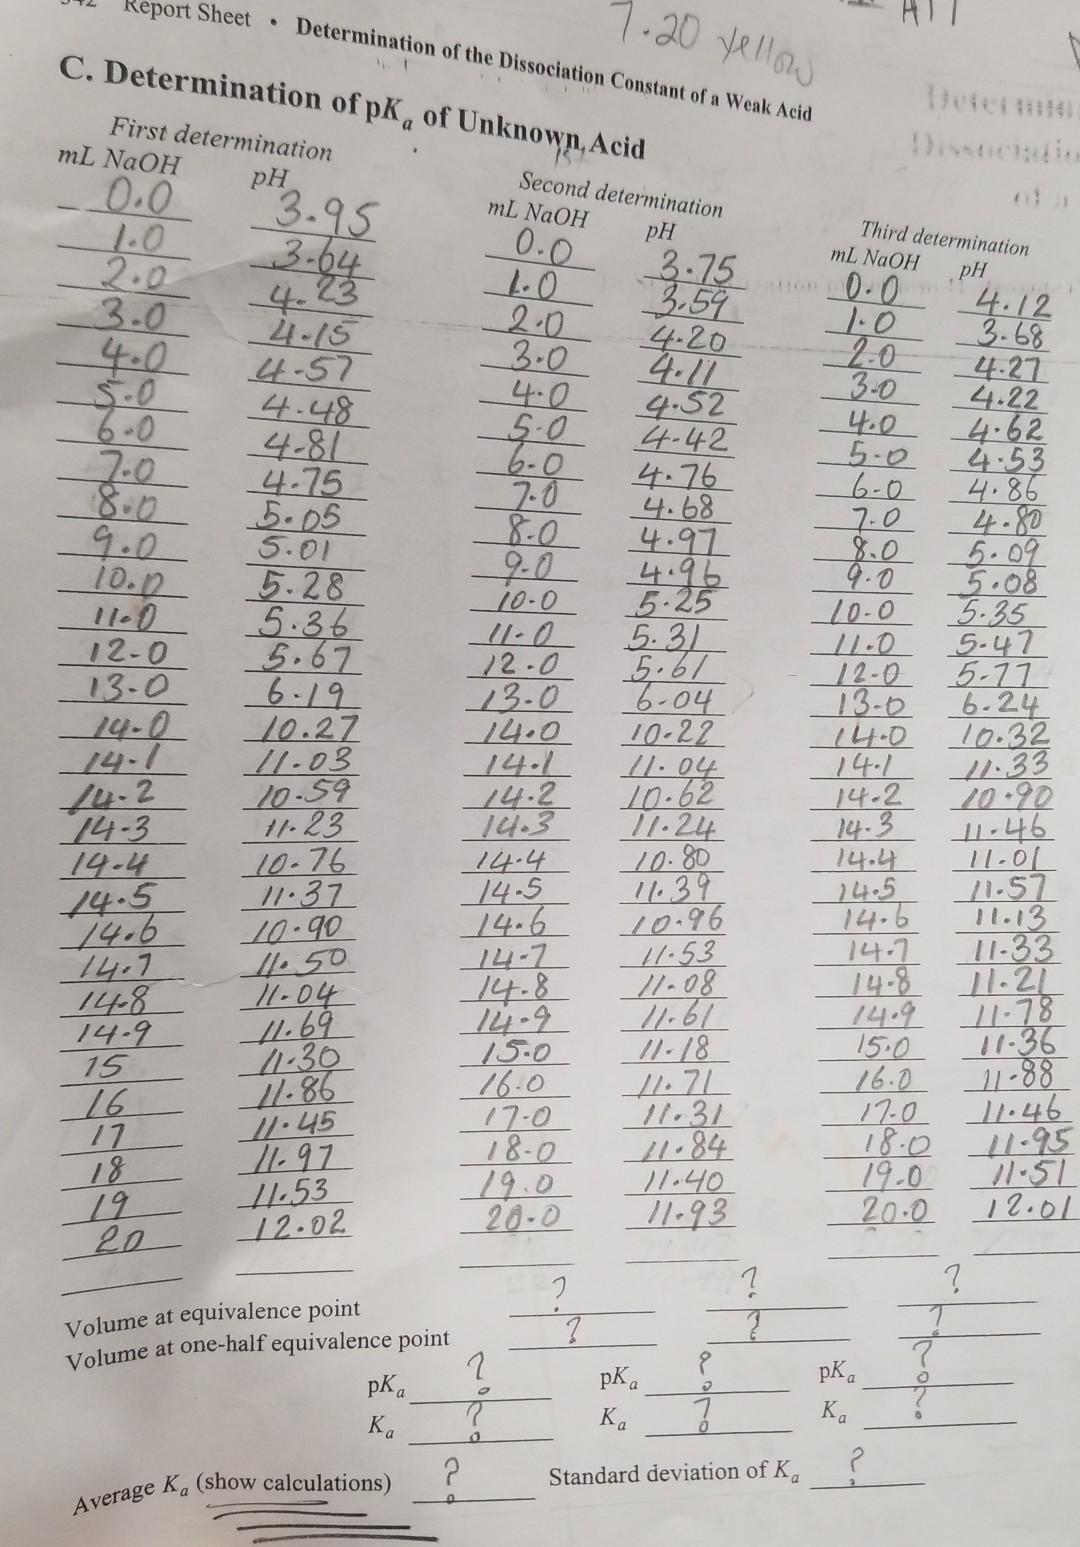 Report Sheet • Determination of the Dissociation Constant of a Weak Acid
7.20 yellow
C. Determination of pKa of Unknown Acid
First determination Second determination Third determination
mL NaOH pH mL NaOH pH mL NaOH pH
0.0 3.95 0.0 3.75 0.0 4.12
1.0 3.64 1.0 3.59 1.0 3.68
2.0 4.23 2.0 4.20 2.0 4.27
3.0 4.15 3.0 4.11 3.0 4.22
4.0 4.57 4.0 4.52 4.0 4.62
5.0 4.48 5.0 4.42 5.0 4.53
6.0 4.81 6.0 4.76 6.0 4.86
7.0 4.75 7.0 4.68 7.0 4.80
8.0 5.05 8.0 4.97 8.0 5.09
9.0 5.01 9.0 4.96 9.0 5.08
10.0 5.28 10.0 5.25 10.0 5.35
11.0 5.36 11.0 5.31 11.0 5.47
12.0 5.67 12.0 5.61 12.0 5.77
13.0 6.19 13.0 6.04 13.0 6.24
14.0 10.27 14.0 10.22 14.0 10.32
14.1 11.03 14.1 11.04 14.1 11.33
14.2 10.59 14.2 10.62 14.2 10.90
14.3 11.23 14.3 11.24 14.3 11.46
14.4 10.76 14.4 10.80 14.4 11.01
14.5 11.37 14.5 11.39 14.5 11.57
14.6 10.90 14.6 10.96 14.6 11.13
14.7 11.50 14.7 11.53 14.7 11.33
14.8 11.04 14.8 11.08 14.8 11.21
14.9 11.69 14.9 11.61 14.9 11.78
15 11.30 15.0 11.18 15.0 11.36
16 11.86 16.0 11.71 16.0 11.88
17 11.45 17.0 11.31 17.0 11.46
18 11.97 18.0 11.84 18.0 11.95
19 11.53 19.0 11.40 19.0 11.51
20 12.02 20.0 11.93 20.0 12.01
Volume at equivalence point ? ? ?
Volume at one-half equivalence point ? ? ?
pKa ? pKa ? pKa ?
Ka ? Ka ? Ka ?
Average Ka (show calculations) ? Standard deviation of Ka ?